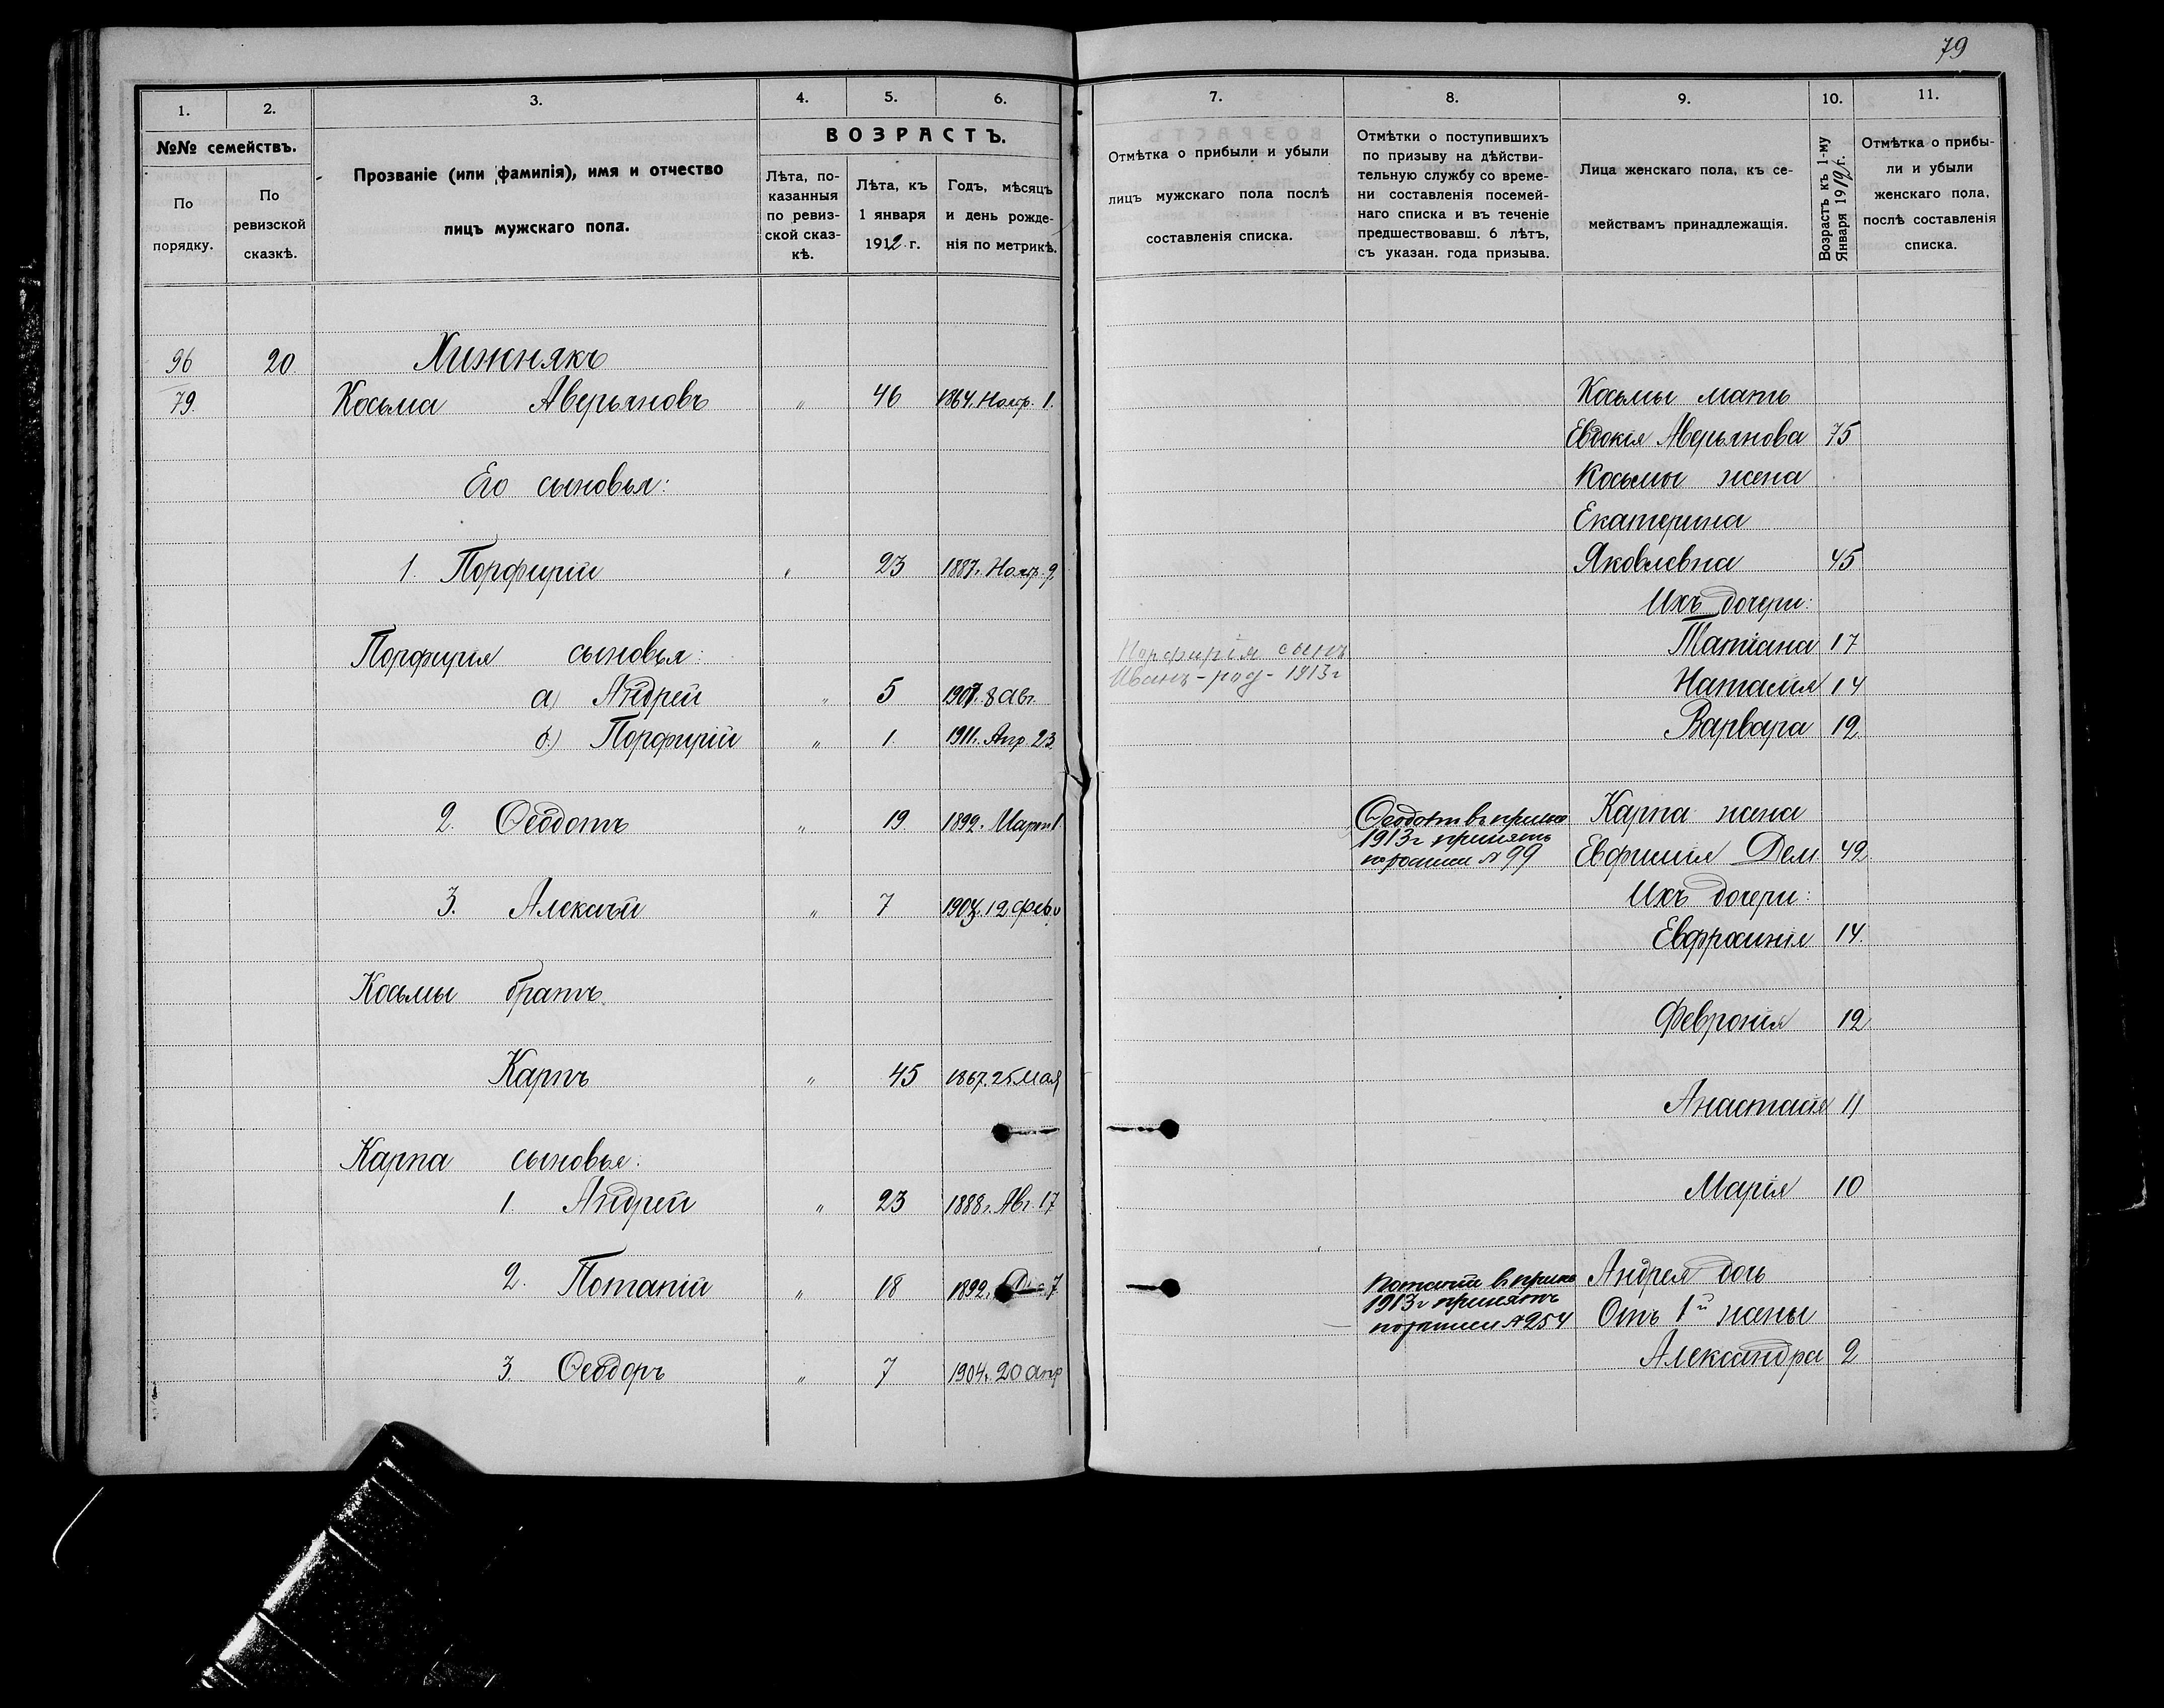 79
1.
2.
3.
4.
5.
6.
№№ семействъ.
По порядку.
По ревизской сказкѣ.
Прозваніе (или фамилія), имя и отчество
лицъ мужскаго пола.
ВОЗРАСТЪ.
Лѣта, по-
казанныя
по ревиз-
ской сказ-
кѣ.
Лѣта, къ
1 января
1912 г.
Годъ, мѣсяцъ
и день рожде-
нія по метрикѣ.
96 20 Хижнякъ
79. Косьма Аверьяновъ „ 46 1864. Нояр. 1.
Его сыновья:
1. Порфирій „ 23 1887. Нояр. 9
Порфирія сыновья:
а) Андрей „ 5 1907. 8 Авг
б) Порфирій „ 1 1911. Апр 23
2. Ѳеодотъ „ 19 1892. Март 1
3. Алексѣй „ 7 1904. 12 Фев.
Косьмы братъ
Карпъ „ 45 1867. 25 Мая
Карпа сыновья:
1 Андрей „ 23 1888. Авг. 17
2. Потапій „ 18 1892. 7
3. Ѳеодоръ „ 7 1904. 20 Апр
7.
8.
9.
10.
11.
Отмѣтка о прибыли и убыли
лицъ мужскаго пола послѣ
составленія списка.
Отмѣтки о поступившихъ
по призыву на дѣйстви-
тельную службу со време-
ни составленія посемей-
наго списка и въ теченіе
предшествовавш. 6 лѣтъ,
съ указан. года призыва.
Лица женскаго пола, къ се-
мействамъ принадлежащія.
Возрастъ къ 1-му
Января 1912 г.
Отмѣтка о прибы-
ли и убыли
женскаго пола,
послѣ составленія
списка.
Косьмы мать
Евдокія Аверьянова 75
Косьмы жена
Екатерина
Яковлевна 45
Ихъ дочери:
Порфирія сынъ
Татіана 17
Иванъ - род - 1913 г
Наталія 14
Варвара 12
Ѳеодотъ въ
1913 г принятъ
№ 99
Карпа жена
Евфимія Дем 42
Ихъ дочери:
Евфросинія 14.
Февронія 12
Анастасія 11
Марія 10
Потапій въ
1913 г принятъ
№ 254
Андрея дочь
Отъ 1й жены
Александра 2